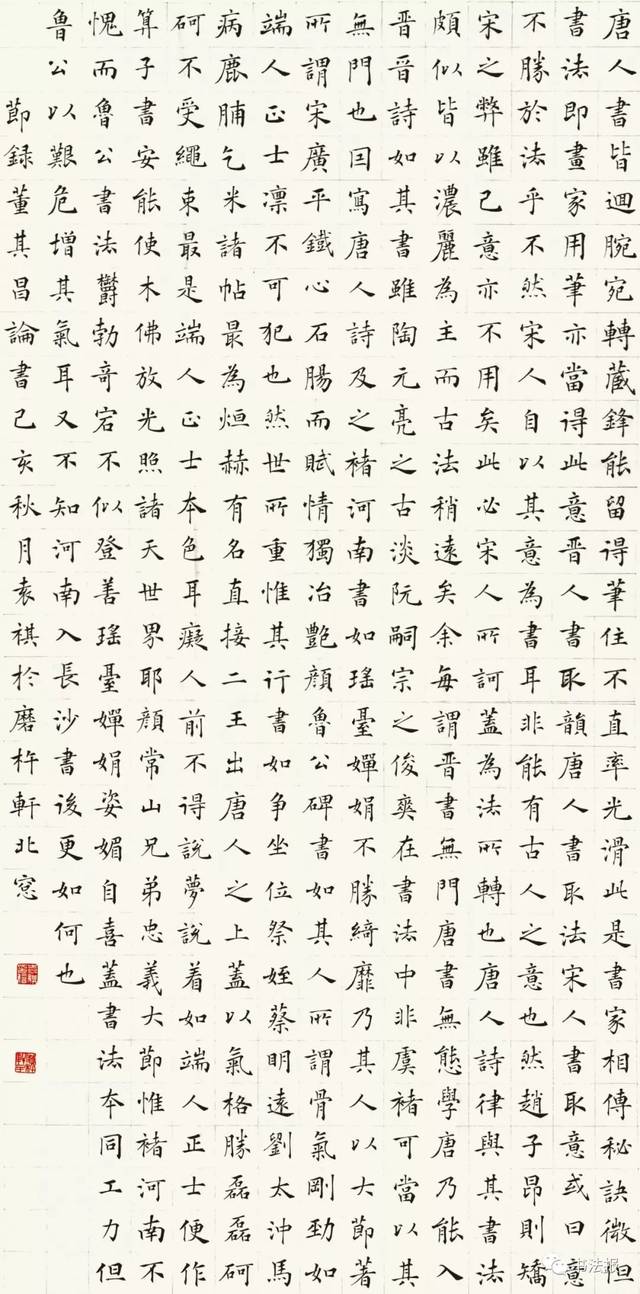 唐人書皆迴腕宛轉藏鋒能留得筆住不直率光滑此是書家相傳秘訣微但
書法即畫家用筆亦當得此意晉人書取韻唐人書取法宋人書取意或曰意
不勝於法乎不然宋人自以其意為書耳非能有古人之意也然趙子昂則矯
宋之弊雖己意亦不用矣此必宋人所訶蓋為法所轉也唐人詩律與其書法
頗似皆以濃麗為主而古法稍遠矣余每謂晉書無門唐書無態學唐乃能入
晉晉詩如其書雖陶元亮之古淡阮嗣宗之俊爽在書法中非虞褚可當以其
無門也因寫唐人詩及之褚河南書如瑤臺嬋娟不勝綺靡乃其人以大節著
所謂宋廣平鐵心石腸而賦情獨冶艷顏魯公碑書如其人所謂骨氣剛勁如
端人正士凛不可犯也然世所重惟其行書如争坐位祭姪蔡明遠劉太沖馬
病鹿脯乞米諸帖最為烜赫有名直接二王出唐人之上蓋以氣格勝磊磊砢
砢不受繩束最是端人正士本色耳癡人前不得說夢說着如端人正士便作
算子書安能使木佛放光照諸天世界耶顏常山兄弟忠義大節惟褚河南不
愧而魯公書法欝勃奇宕不似登善瑤臺嬋娟姿媚自喜蓋書法本同工力但
魯公以艱危增其氣耳又不知河南入長沙書後更如何也
節録董其昌論書己亥秋月袁祺於磨杵軒北窓
书法报